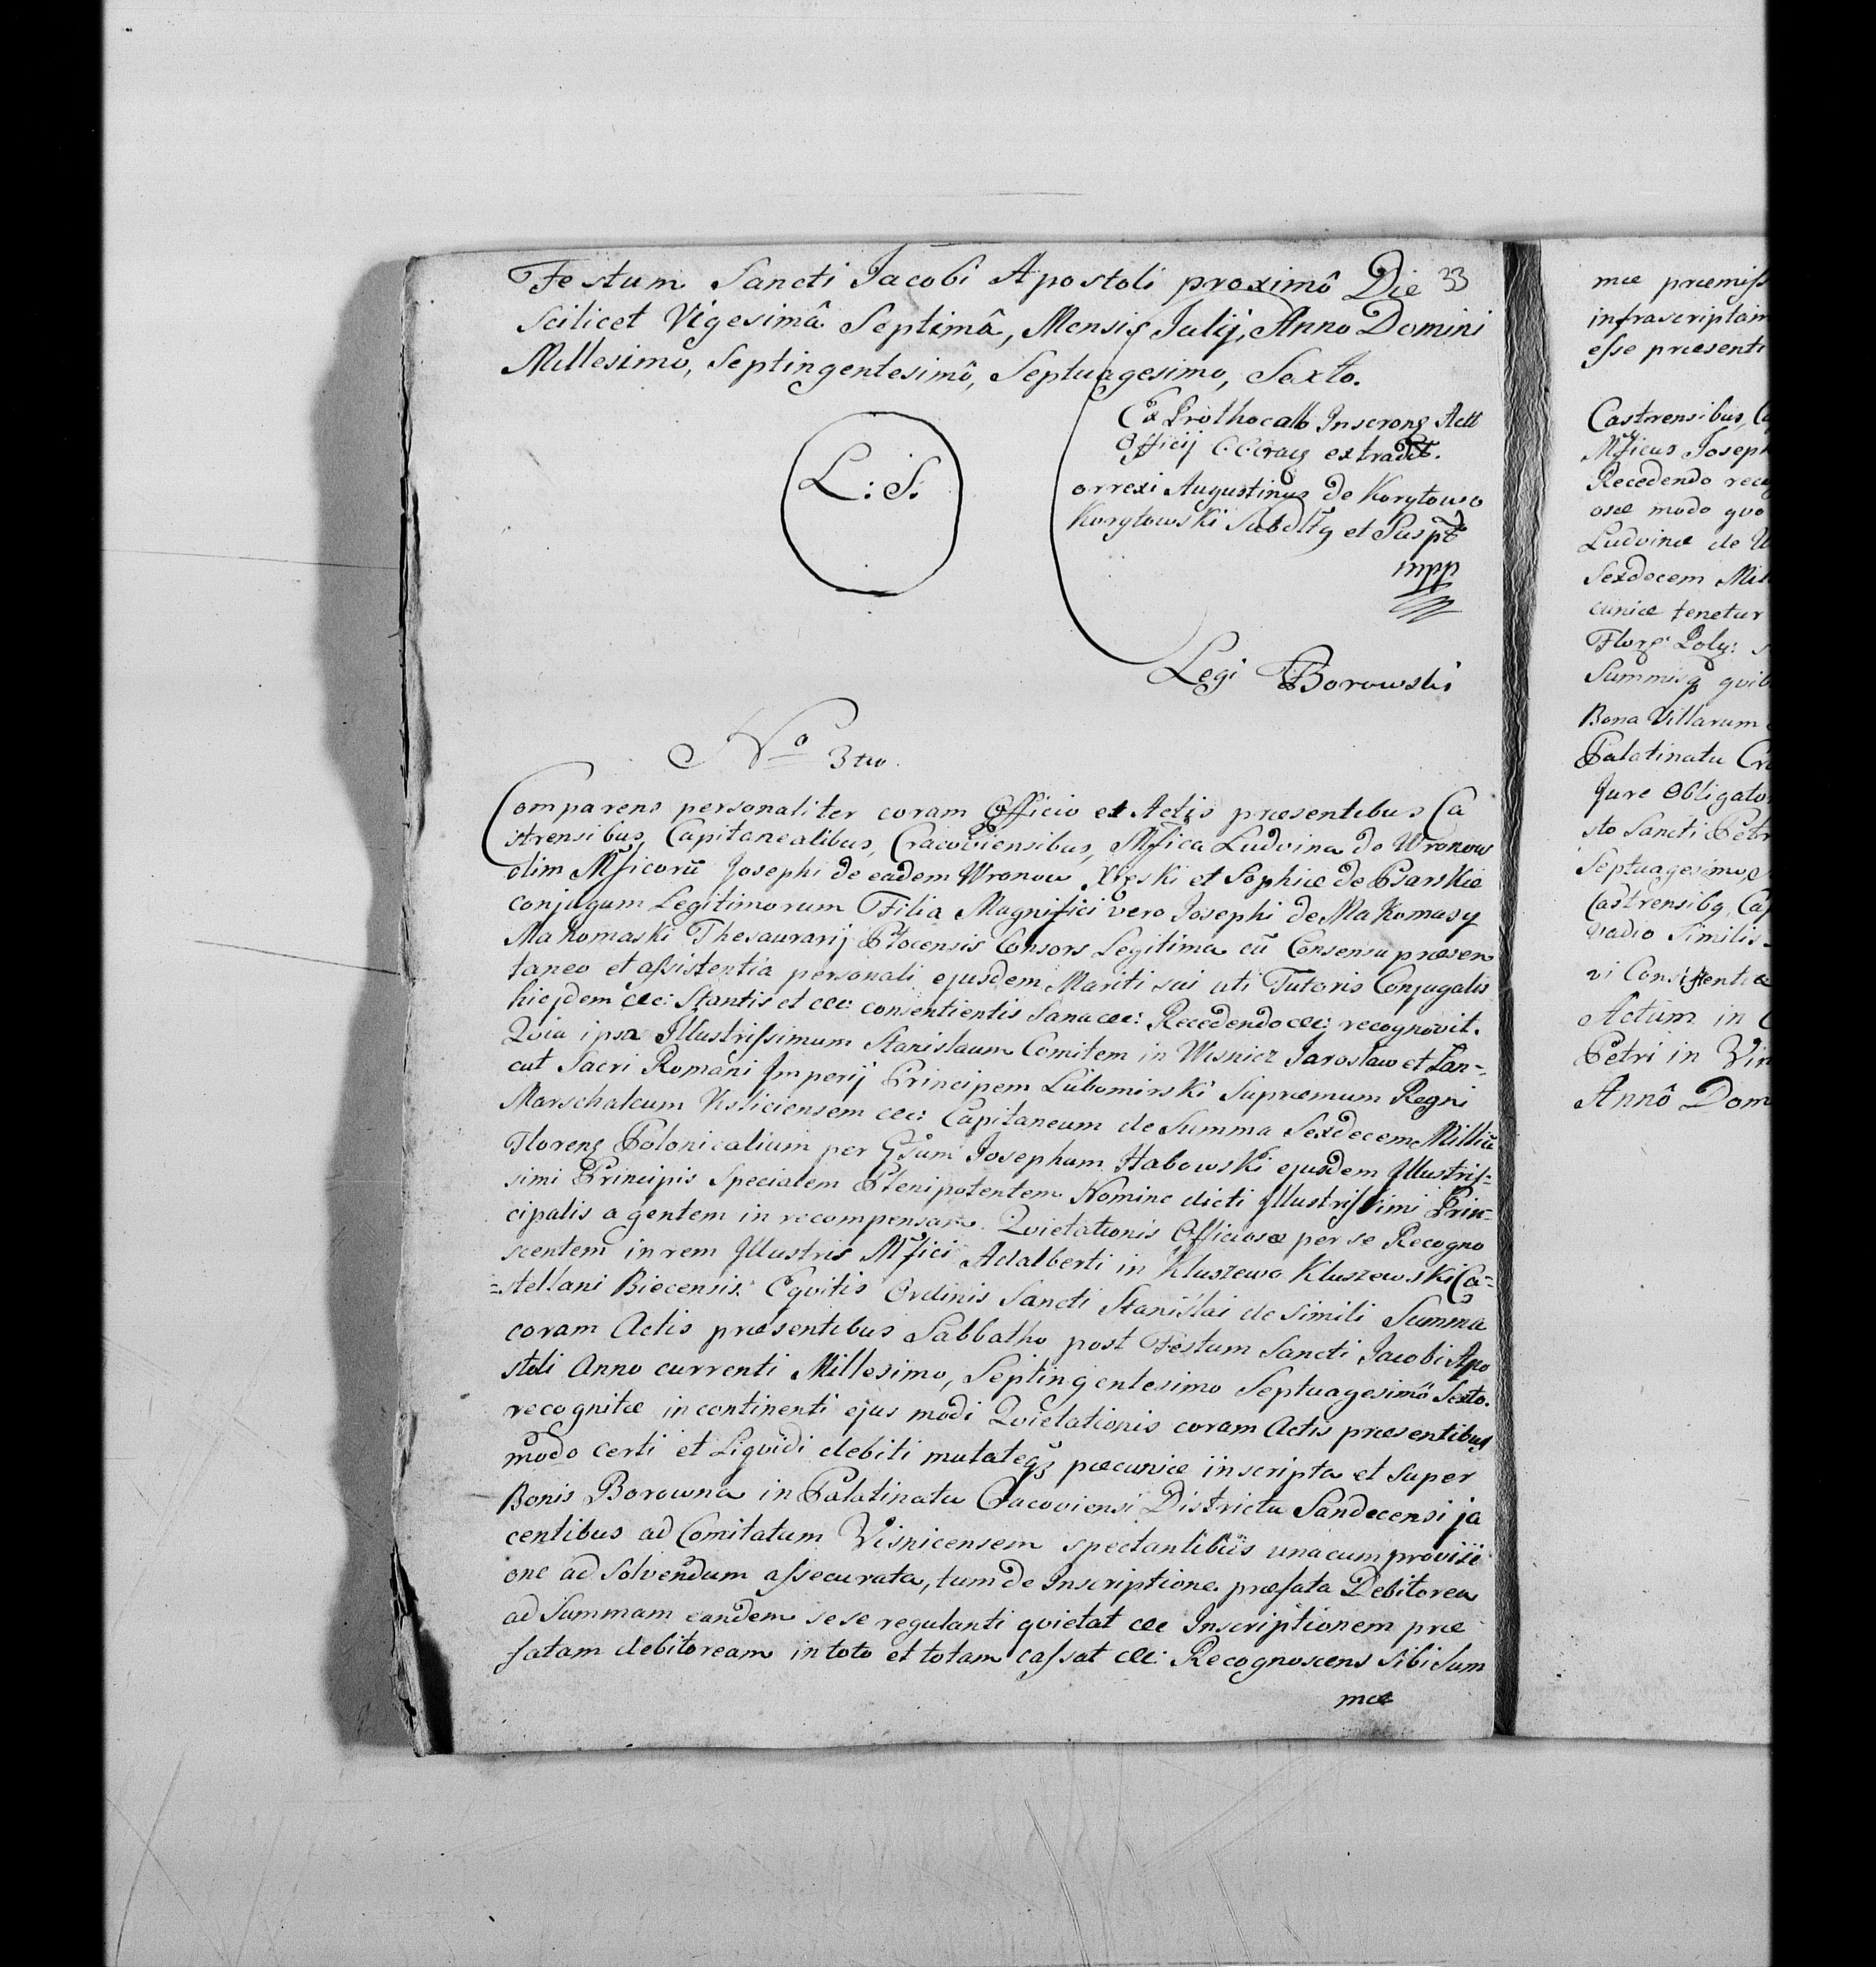 Festum Sancti Jacobi Apostoli proximô Die 33
Scilicet Vigesimâ Septimâ, Mensis Julij, Anno Domini
Millesimo, Septingentesimô, Septuagesimo, Sexto.
Ex Prothocollo Inscrong Actt
Officij C.C.Cracg extradit.
L: S.
Correxi Augustinus de Korytowo
Korytowski Subdltg et Suspt
mpp
Legi Borowski
No 3tio.
Comparens personaliter coram Officio et Actis præsentibus Ca
strensibus, Capitanealibus, Cracoviensibus, Mfica Ludvina de Wronow
olim Mficorũ Josephi de eadem Wronow et Sophiæ de Psarskie
conjugum Legitimorum Filia Magnifici vero Josephi de Makomasy
Makomaski Thesaurarij Plocensis Consors Legitima cũ Consensu præsen
taneo et assistentia personali ejusdem Mariti sui uti Tutoris Conjugalis
hicjdem &c: Stantis et &c: consentientis Sana &c: Recedendo &c: recognovit.
Qvia ipsa Illustrissimum Stanislaum Comitem in Wisnicz Jaroslaw et Lan-
cut Sacri Romani Imperij Principem Lubomirski Supræmum Regni
Marschalcum Visliciensem &c: Capitaneum de Summa Sexdecem Milliũ
Floreng Polonicalium per Gsum Josephum Habowski ejusdem Illustris-
simi Principis Specialem Plenipotentem Nomine dicti Illustrissimi Prin-
cipalis agentem in recompensam Qvietationis Officiosæ per se Recogno
scentem in rem Illustris Mfici Adalberti in Kluszewo Kluszewski Ca=
=stellani Biecensis Eqvitis Ordinis Sancti Stanislai de simili Summa
coram Actis præsentibus Sabbatho post Festum Sancti Jacobi Apo
stoli Anno currenti Millesimo, Septingentesimo Septuagesimô Sexto.
recognitæ incontinenti ejus modi Qvietationis coram Actis præsentibus
modo certi et Liqvidi debiti mutateq3 pæcuniæ inscripta et super
Bonis Borowna in Palatinatu Cracoviensi Districtu Sandecensi ja
centibus ad Comitatum Visnicensem spectantibus unacum provisi
one ad Solvendum assecurata, tum de Inscriptione præfata Debitorea
ad Summam eandem sese regulanti qvietat &c Inscriptionem præ
fatam debitoream in toto et totam cassat &c: Recognoscens sibi Sum
mæ
mæ præmiss
infrascriptam
esse præsenti
Castrensibus, Ca
Mficus Joseph
Recedendo reco
osæ modo quo
Ludvinæ de W
Sexdecem Mill
cuniæ tenetur
Floreg Poly:
Summisq qvib
Bona Villarum
Palatinatu Cra
Jure Obligato
sto Sancti Petr
Septuagesimo, S
Castrensibq, Cap
vadio Similis
vi Consistentiæ
Actum in C
Petri in Vin
Annô Dom